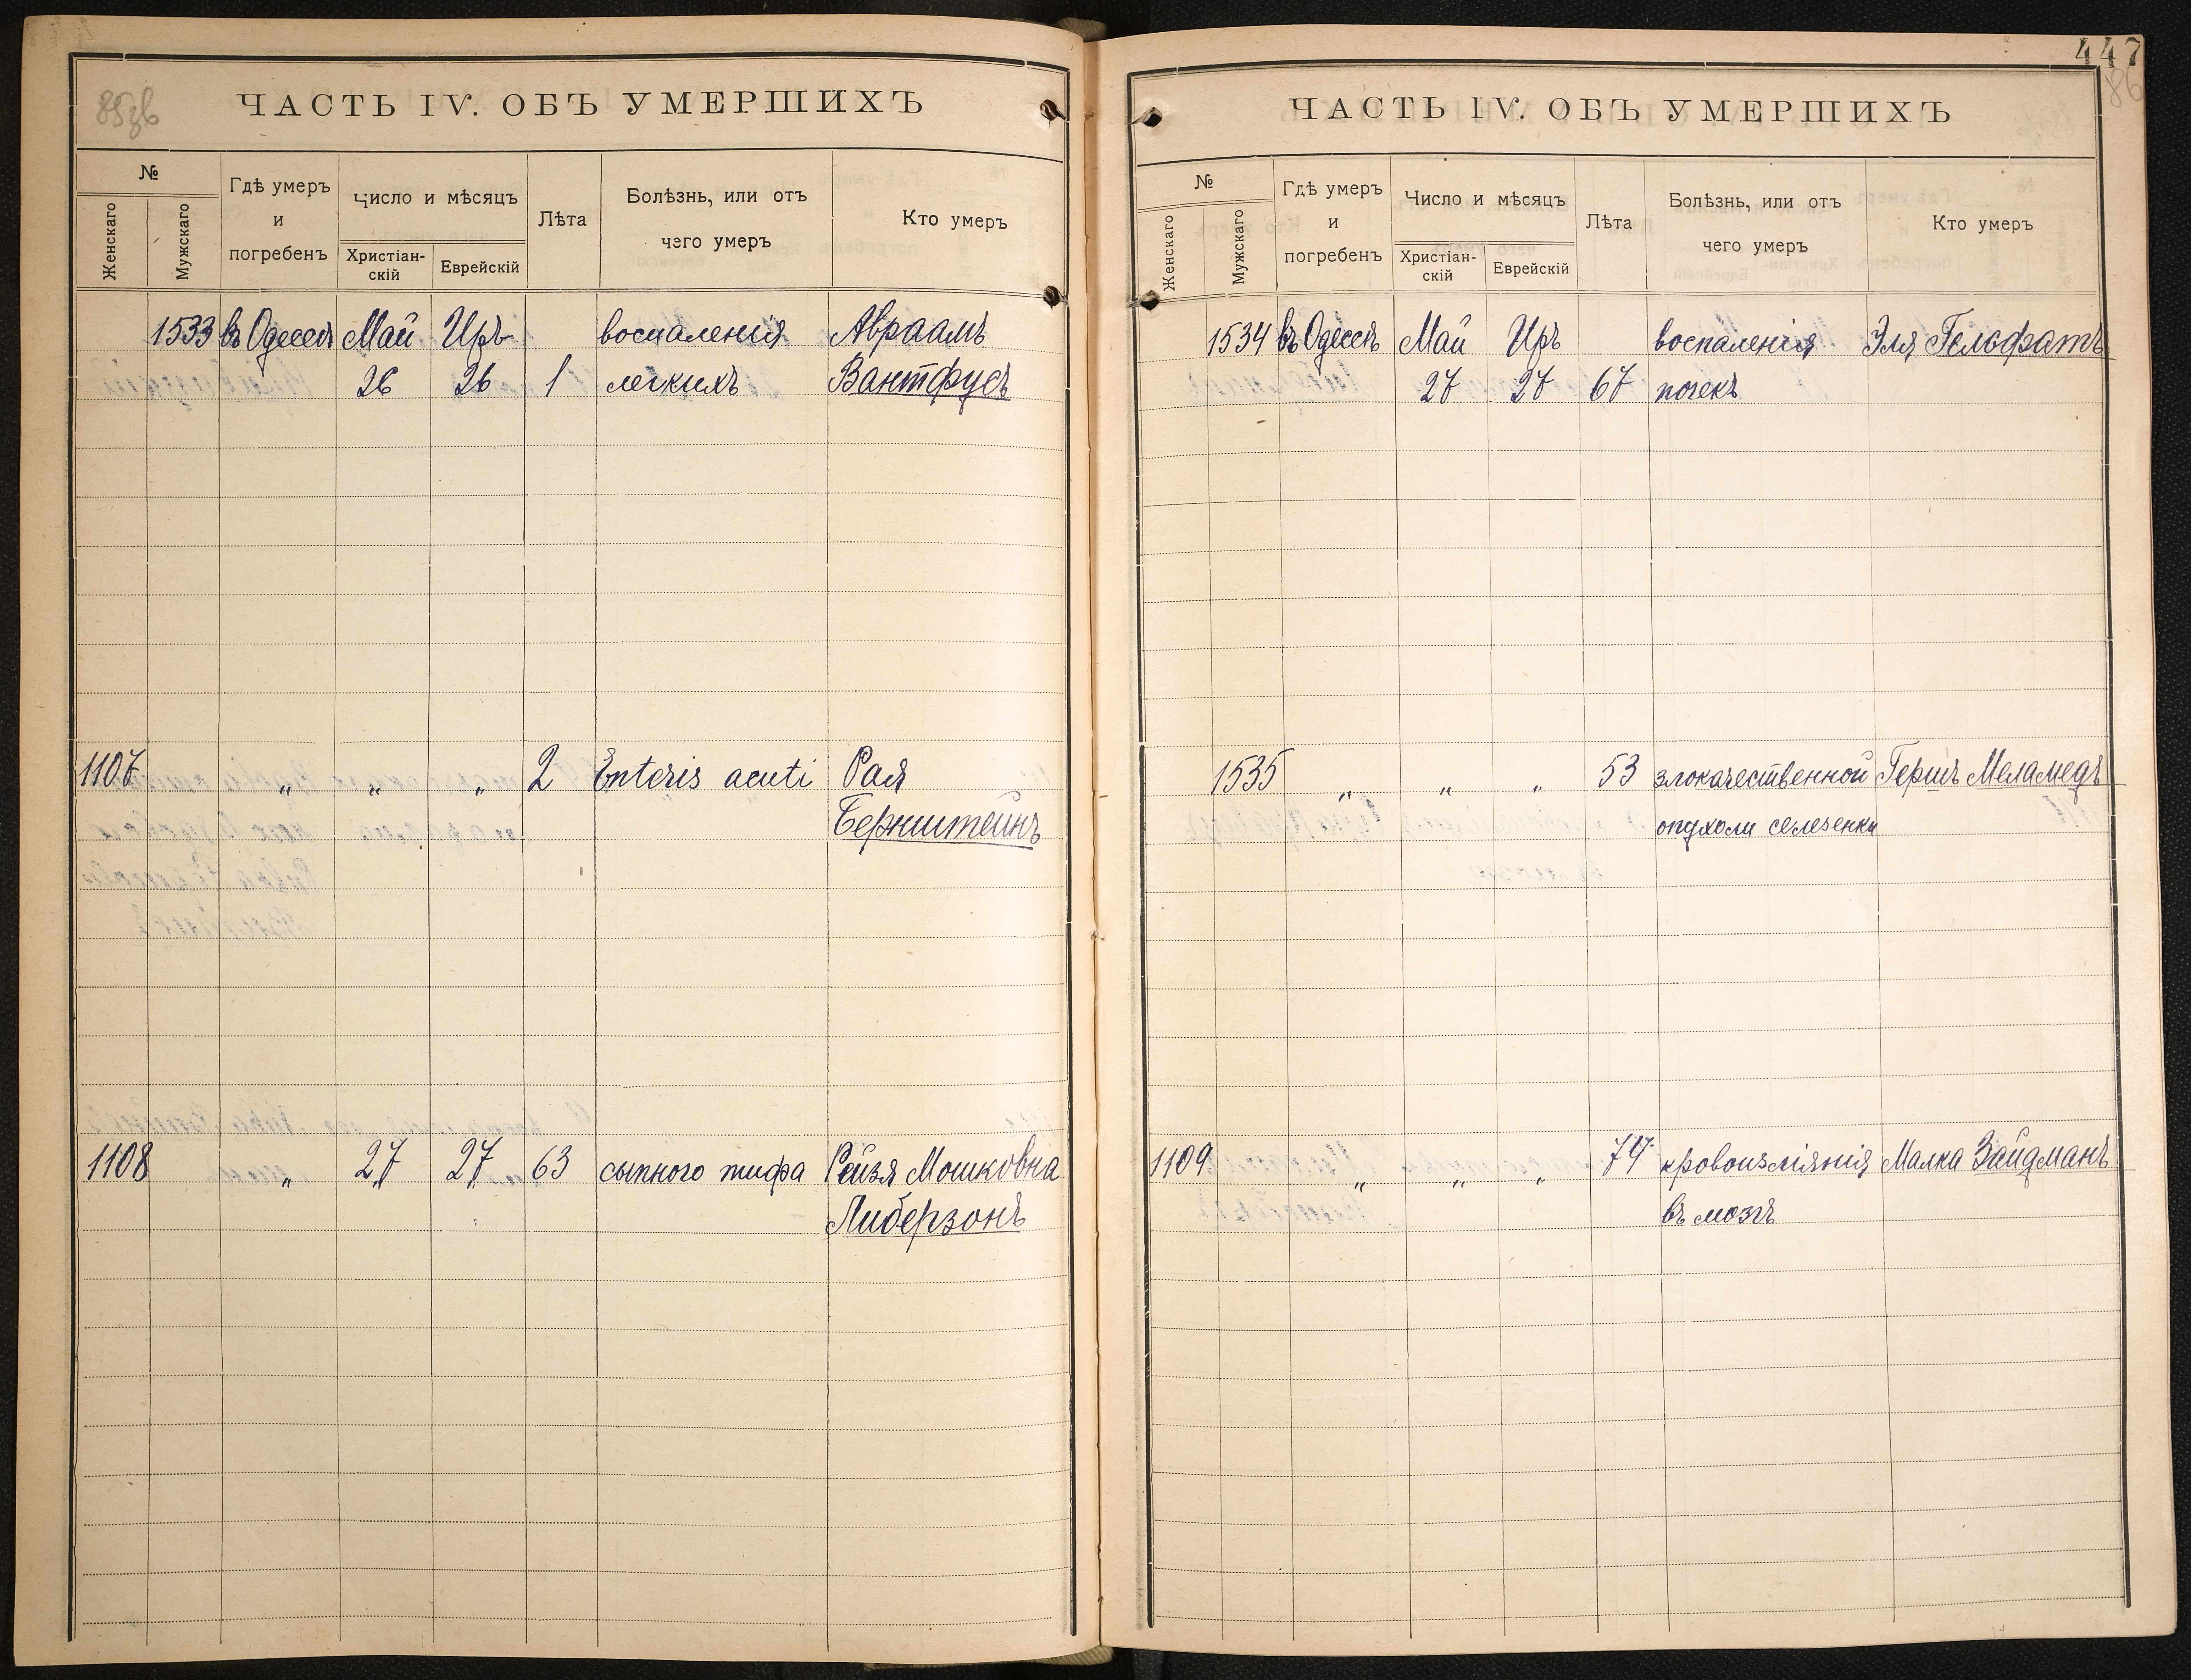 85зв
ЧАСТЬ IV. ОБЪ УМЕРШИХЪ
№
Женскаго
Мужскаго
Гдѣ умеръ
и
погребенъ
Число и мѣсяцъ
Христіан-
скій
Еврейскій
Лѣта
Болѣзнь, или отъ
чего умеръ
Кто умеръ
1533 въ Одессѣ Май Иръ воспаленія Авраамъ
26 26 1 легкихъ Вантфусъ
1107 " " " 2 Enteris acuti Рая
Бернштейнъ
1108 " 27 27 63 сыпного тифа Рейзя Мошковна
Либерзонъ
447
86
ЧАСТЬ IV. ОБЪ УМЕРШИХЪ
№
Женскаго
Мужскаго
Гдѣ умеръ
и
погребенъ
Число и мѣсяцъ
Христіан-
скій
Еврейскій
Лѣта
Болѣзнь, или отъ
чего умеръ
Кто умеръ
1534 въ Одессѣ Май Иръ воспаленія Эля Гельфатъ
27 27 67 почекъ
1535 " " " 53 злокачественной Гершъ Меламедъ
опухоли селезенки
1109 " " " 74 кровоизліянія Малка Зайдманъ
въ мозгъ